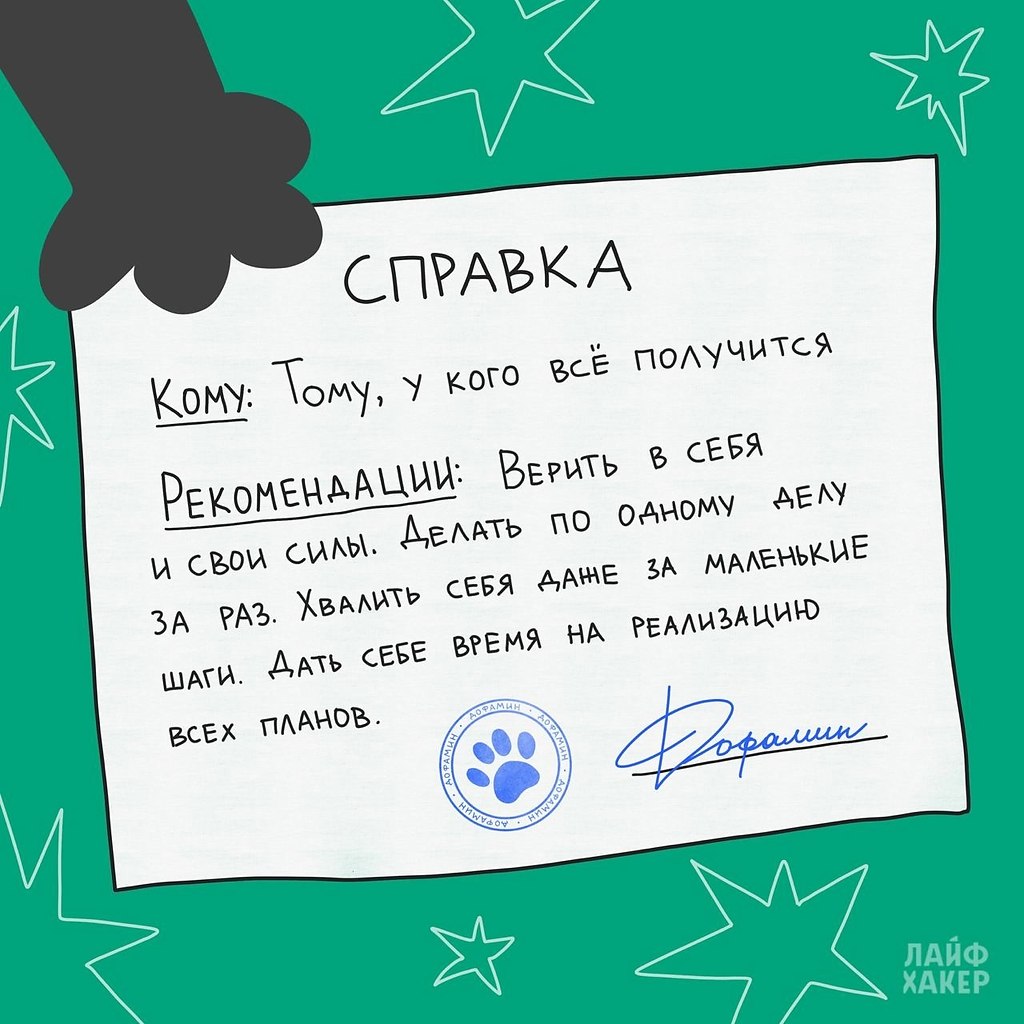 СПРАВКА
Кому: Тому, у кого всё получится
Рекомендации: Верить в себя
и свои силы. Делать по одному делу
за раз. Хвалить себя даже за маленькие
шаги. Дать себе время на реализацию
всех планов.
ДОФАМИН · ДОФАМИН · ДОФАМИН · ДОФАМИН · ДОФАМИН ·
Дофамин
ЛАЙФ
ХАКЕР